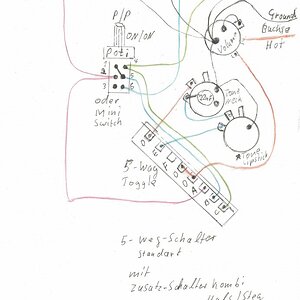 P/P
ON/ON
Poti
Ground
Buchse
Hot
Volumen
oder
Mini
Switch
Tone
Neck
22nF
Tone
Lipstick
5-Way
Toggle
5-Weg-Schalter
Standart
mit
Zusatz-Schalter kombi
Hals/Steg